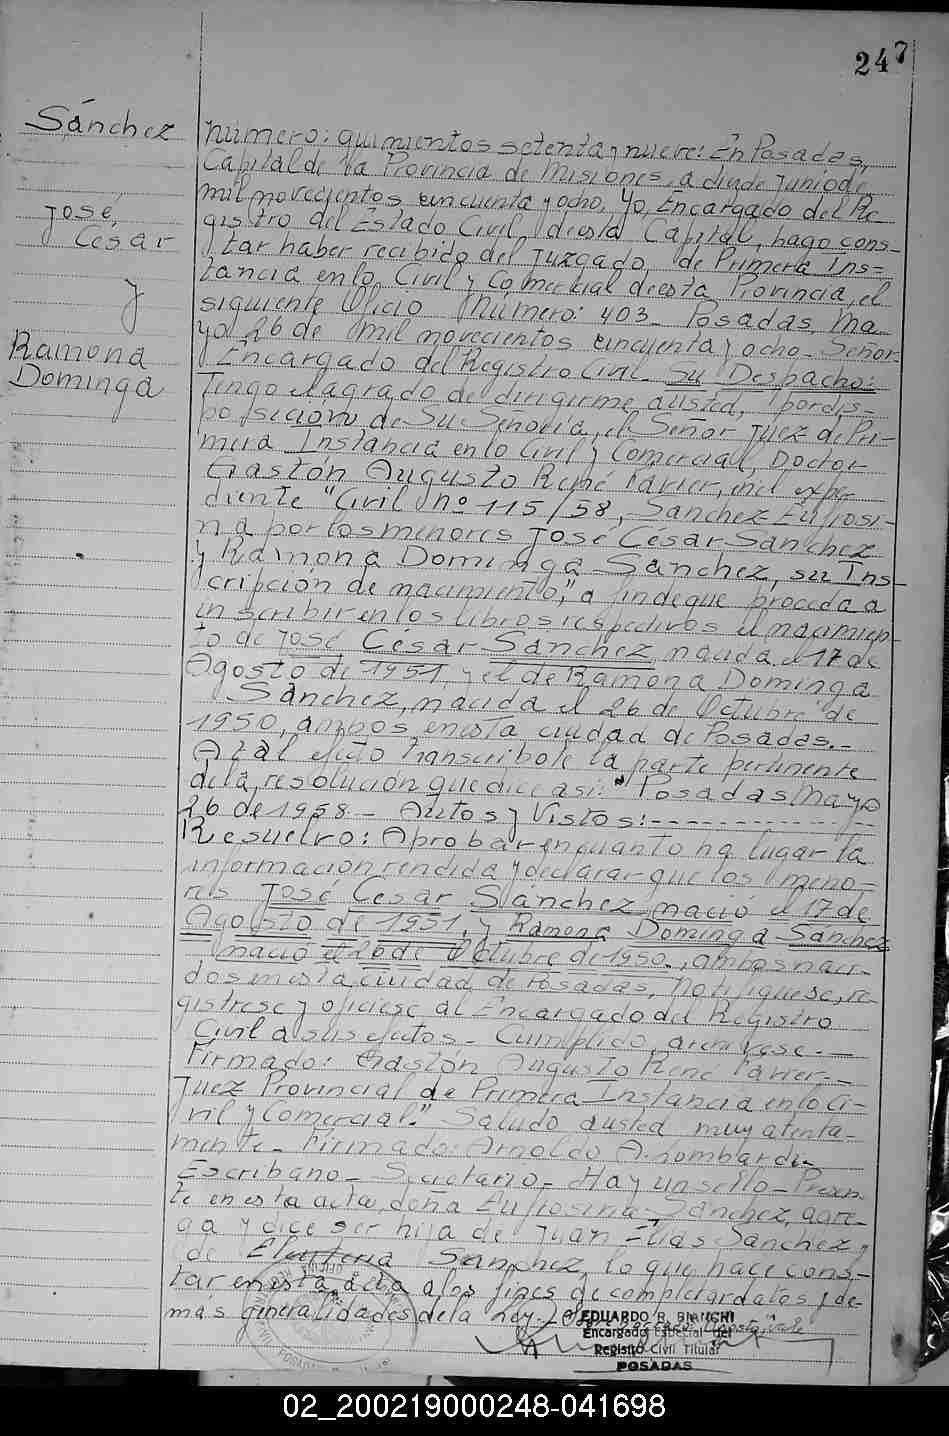 247
Sánchez
José
César
y
Ramona
Dominga
Número: quinientos setenta y nueve: En Posadas,
Capital de la Provincia de Misiones, a de Junio de
mil novecientos cincuenta y ocho, Yo, Encargado del Re-
gistro del Estado Civil de esta Capital, hago cons-
tar haber recibido del Juzgado, de Primera Ins=
tancia en lo Civil y Comercial de esta Provincia, el
siguiente Oficio Número: 403_ Posadas, Ma-
yo 26 de mil novecientos cincuenta y ocho_ Señor
Encargado del Registro Civil_ Su Despacho:
Tengo el agrado de dirigirme a usted, por dis-
posición de Su Señoría, el Señor Juez de Pri-
mera Instancia en lo Civil y Comercial, Doctor
Gastón Augusto René, en el expe
diente "Civil nº 115/58, Sánchez Eufrosi-
na por los menores José César Sánchez
y Ramona Dominga Sánchez, su Ins-
cripción de nacimiento", a fin de que proceda a
inscribir en los libros respectivos el nacimien-
to de José César Sánchez, nacida el 17 de
Agosto de 1951, y el de Ramona Dominga
Sánchez, nacida el 26 de Octubre de
1950, ambos en esta ciudad de Posadas._
A tal efecto transcríbole la parte pertinente
de la, resolución que dice así: "Posadas Mayo
26 de 1958_ Autos y Vistos:----------
Resuelvo: Aprobar en cuanto ha lugar la
información rendida y declarar que los meno=
res José César Sánchez nació el 17 de
Agosto de 1951, y Ramona Dominga Sánchez
nació el 26 de Octubre de 1950_, ambos naci-
dos en esta ciudad de Posadas, notifíquese, re-
gístrese y ofíciese al Encargado del Registro
Civil a sus efectos_ Cumplido, archívese._
Firmado: Gastón Augusto René._
Juez Provincial de Primera Instancia en lo Ci-
vil y Comercial." Saludo a usted muy atenta-
mente_ Firmado: Arnoldo A. Lombardi_
Escribano_ Secretario_ Hay un sello_ Presen
te en esta acta, doña Eufrosina Sánchez, agre-
ga y dice ser hija de Juan Elías Sánchez y
de Eleuteria Sánchez, lo que hace cons-
tar en esta acta a los fines de completar datos y de-
más generalidades de la Ley._
EDUARDO R. BIANCHI
Encargado Especial del
Registro Civil Titular
POSADAS
02_200219000248-041698